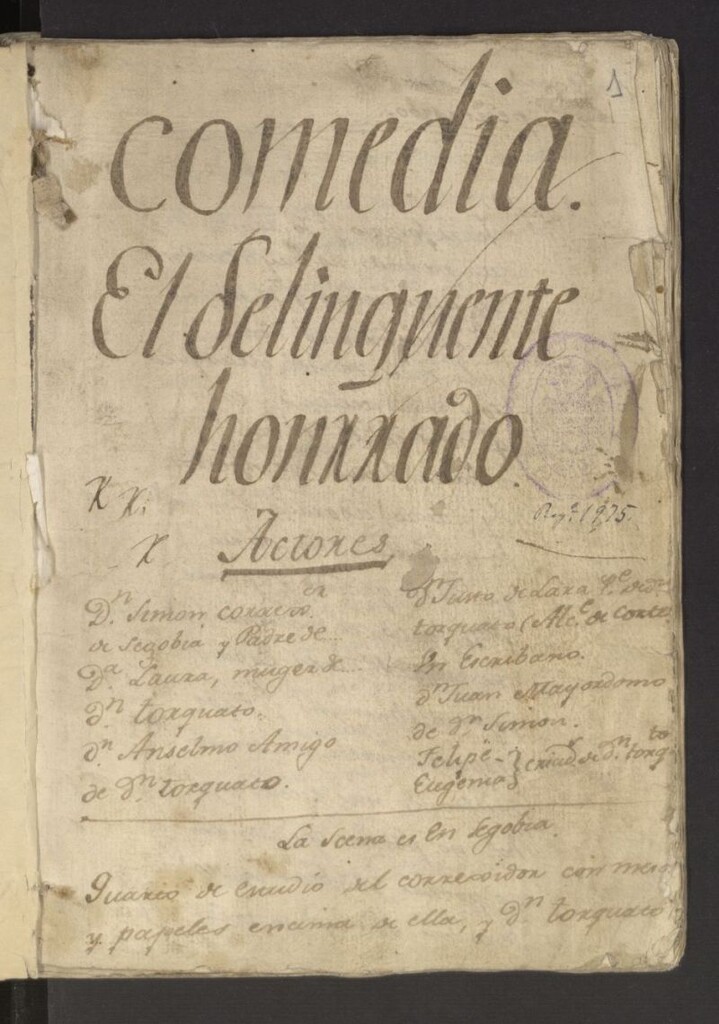 1
comedia.
El delinquente
honrrado.
Actores
D.n Simon correxor
de Segobia y Padre de
D.a Laura, muger de
d.n torquato.
d.n Anselmo Amigo
de d.n torquato.
dn Justo de Lara P.e de dn
torquato (Alc.e de Corte
Un Escribano.
dn Juan Mayordomo
de dn Simon.
Felipe
Eugenia} criad.s de d.n torqto
La scena es En Segobia.
Quarto de estudio del corregidor con mesa
y papeles encima de ella, y d.n torquato